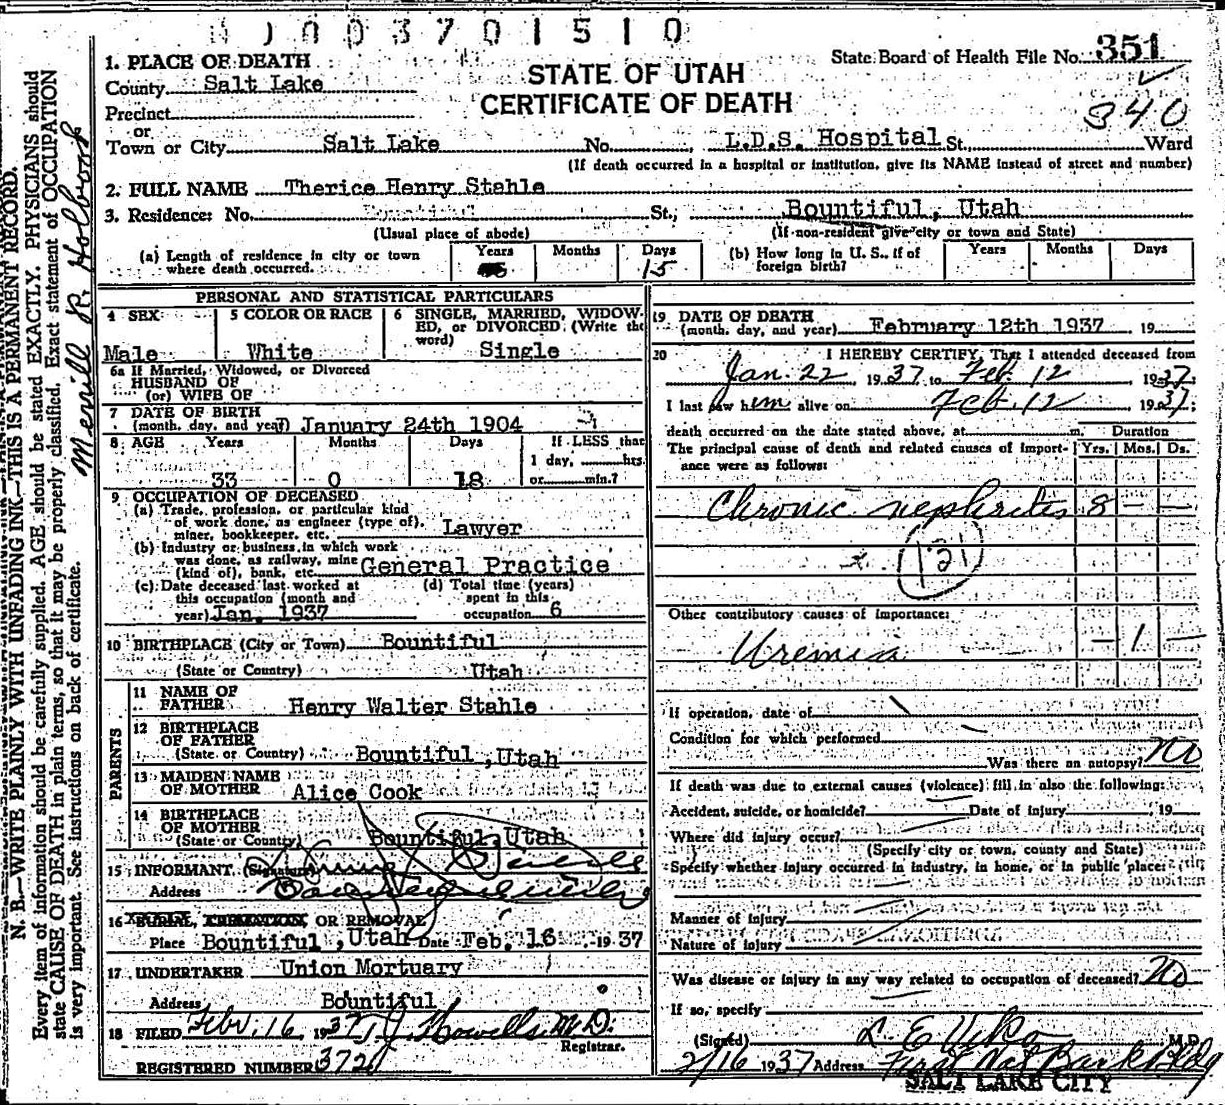 0003701510
State Board of Health File No. 351
340
STATE OF UTAH
CERTIFICATE OF DEATH
1. PLACE OF DEATH
County Salt Lake
Precinct
or
Town or City Salt Lake No. L.D.S. Hospital St., Ward
(If death occurred in a hospital or institution, give its NAME instead of street and number)
2. FULL NAME Therice Henry Stahle
3. Residence: No. St., Bountiful, Utah
(Usual place of abode) (If non-resident give city or town and State)
(a) Length of residence in city or town where death occurred. Years Months Days 15
(b) How long in U. S., if of foreign birth? Years Months Days
PERSONAL AND STATISTICAL PARTICULARS
4 SEX Male
5 COLOR OR RACE White
6 SINGLE, MARRIED, WIDOWED, or DIVORCED (Write the word) Single
6a If Married, Widowed, or Divorced
HUSBAND OF
(or) WIFE OF
7 DATE OF BIRTH
(month, day, and year) January 24th 1904
8 AGE Years Months Days If LESS than
33 0 18 1 day, hrs.
or min.?
9 OCCUPATION OF DECEASED
(a) Trade, profession, or particular kind
of work done, as engineer (type of),
miner, bookkeeper, etc. Lawyer
(b) Industry or business in which work
was done, as railway, mine
(kind of), bank, etc. General Practice
(c) Date deceased last worked at
this occupation (month and
year) Jan. 1937
(d) Total time (years)
spent in this
occupation 6
10 BIRTHPLACE (City or Town) Bountiful
(State or Country) Utah
PARENTS
11 NAME OF
FATHER Henry Walter Stahle
12 BIRTHPLACE
OF FATHER
(State or Country) Bountiful, Utah
13 MAIDEN NAME
OF MOTHER Alice Cook
14 BIRTHPLACE
OF MOTHER
(State or Country) Bountiful, Utah
15 INFORMANT (Signature)
Address
16 BURIAL, CREMATION, OR REMOVAL
Place Bountiful, Utah Date Feb. 16 1937
17 UNDERTAKER Union Mortuary
Address Bountiful
18 FILED Febr. 16, 1937 T. J. Howells M.D.
Registrar.
REGISTERED NUMBER 372
19 DATE OF DEATH
(month, day, and year) February 12th 1937 19
20 I HEREBY CERTIFY, That I attended deceased from
Jan. 22, 1937 to Feb. 12 1937
I last saw him alive on Feb. 12 1937;
death occurred on the date stated above, at m. Duration
The principal cause of death and related causes of importance were as follows: Yrs. Mos. Ds.
Chronic nephritis 8 — —
121
Other contributory causes of importance:
Uremia — 1 —
If operation, date of
Condition for which performed
Was there an autopsy? No
If death was due to external causes (violence) fill in also the following:
Accident, suicide, or homicide? Date of injury 19
Where did injury occur?
(Specify city or town, county and State)
Specify whether injury occurred in industry, in home, or in public place:
Manner of injury
Nature of injury
Was disease or injury in any way related to occupation of deceased? No
If so, specify
(Signed) L. E. Viko M.D.
2/16 1937 Address First Nat Bank Bldg
SALT LAKE CITY
N. B.—WRITE PLAINLY WITH UNFADING INK—THIS IS A PERMANENT RECORD.
Every item of information should be carefully supplied. AGE should be stated EXACTLY. PHYSICIANS should
state CAUSE OF DEATH in plain terms, so that it may be properly classified. Exact statement of OCCUPATION
is very important. See instructions on back of certificate.
Merrill R. Holbrook